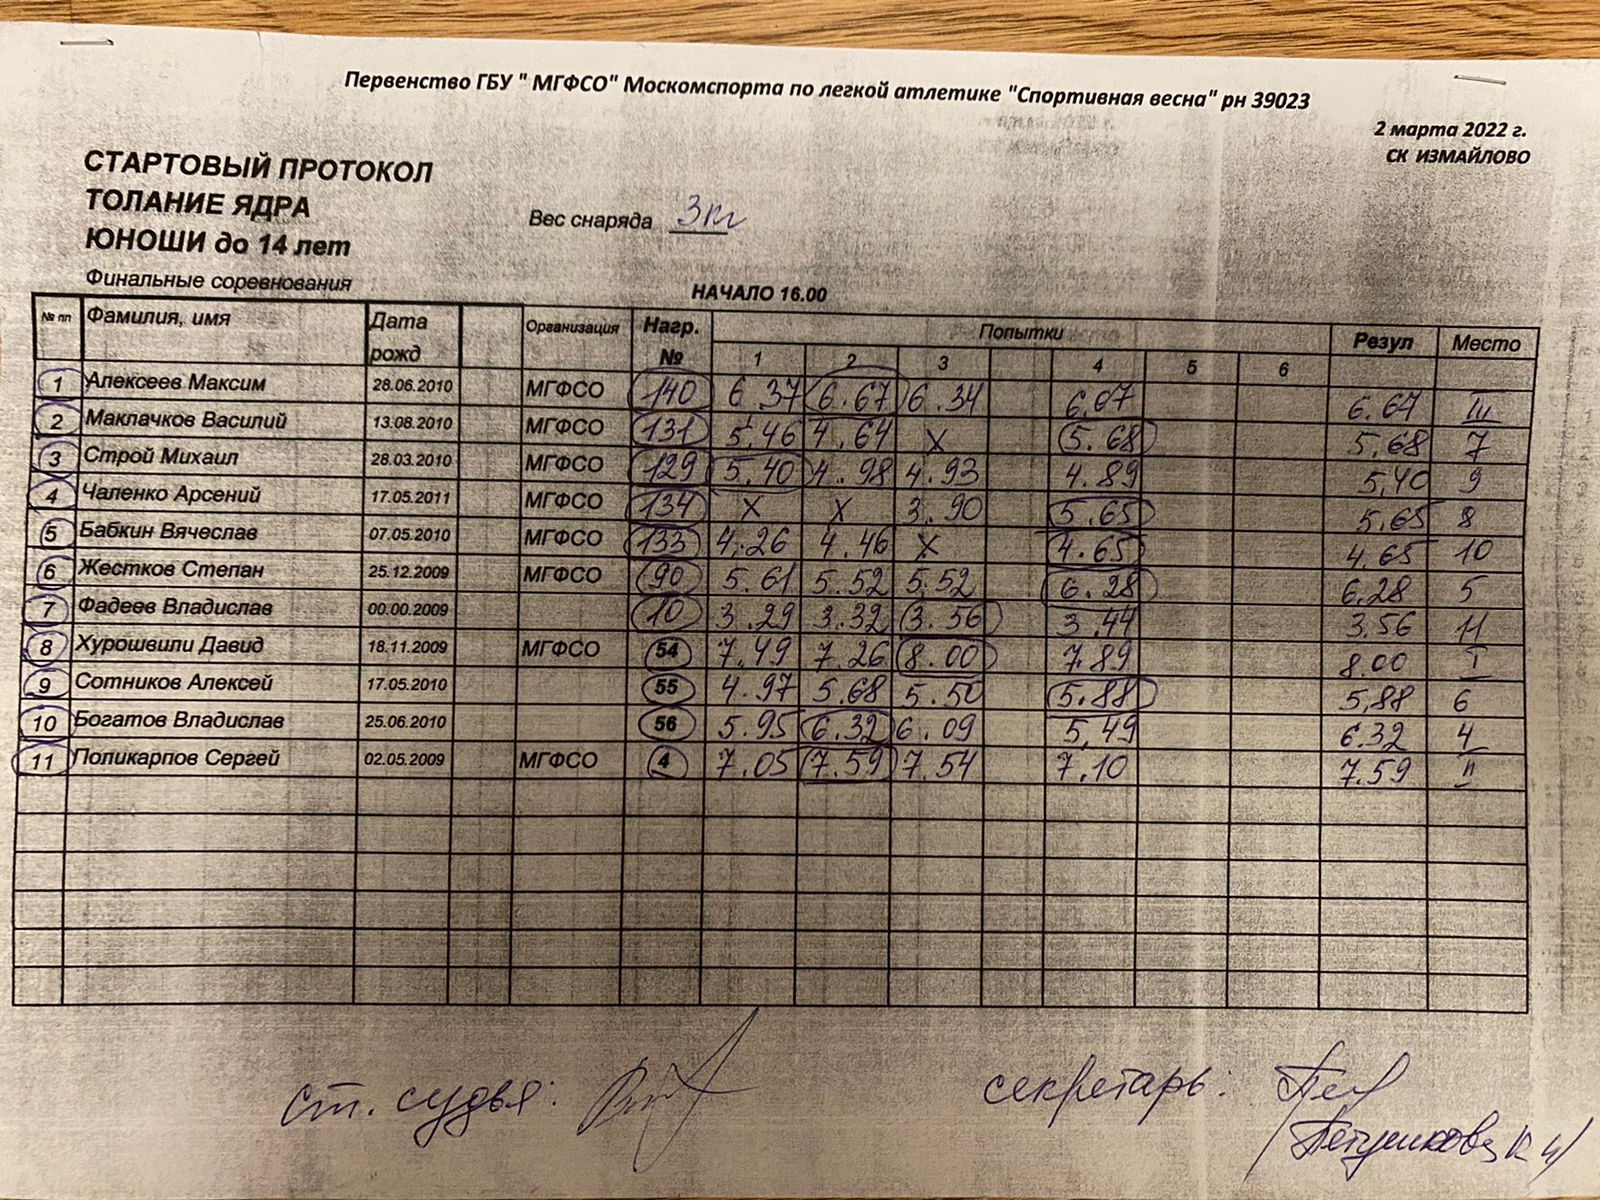 Первенство ГБУ " МГФСО" Москомспорта по легкой атлетике "Спортивная весна" рн 39023
2 марта 2022 г.
СК ИЗМАЙЛОВО
СТАРТОВЫЙ ПРОТОКОЛ
ТОЛАНИЕ ЯДРА
ЮНОШИ до 14 лет
Вес снаряда 3кг
Финальные соревнования
НАЧАЛО 16.00
№ пп Фамилия, имя Дата рожд Организация Нагр. № Попытки Резул Место
1 2 3 4 5 6
1 Алексеев Максим 28.06.2010 МГФСО 140 6.37 6.67 6.34 6.07 6.67 III
2 Маклачков Василий 13.08.2010 МГФСО 131 5.46 4.64 X 5.68 5,68 7
3 Строй Михаил 28.03.2010 МГФСО 129 5.40 4.98 4.93 4.89 5,40 9
4 Чаленко Арсений 17.05.2011 МГФСО 134 X X 3.90 5.65 5,65 8
5 Бабкин Вячеслав 07.05.2010 МГФСО 133 4.26 4.46 X 4.65 4.65 10
6 Жестков Степан 25.12.2009 МГФСО 90 5.61 5.52 5.52 6.28 6.28 5
7 Фадеев Владислав 00.00.2009 10 3.29 3.32 3.56 3.44 3.56 11
8 Хурошвили Давид 18.11.2009 МГФСО 54 7.49 7.26 8.00 7.89 8.00 I
9 Сотников Алексей 17.05.2010 55 4.97 5.68 5.50 5.88 5,88 6
10 Богатов Владислав 25.06.2010 56 5.95 6.32 6.09 5,49 6.32 4
11 Поликарпов Сергей 02.05.2009 МГФСО 4 7.05 7.59 7.54 7.10 7.59 II
ст. судья: секретарь: